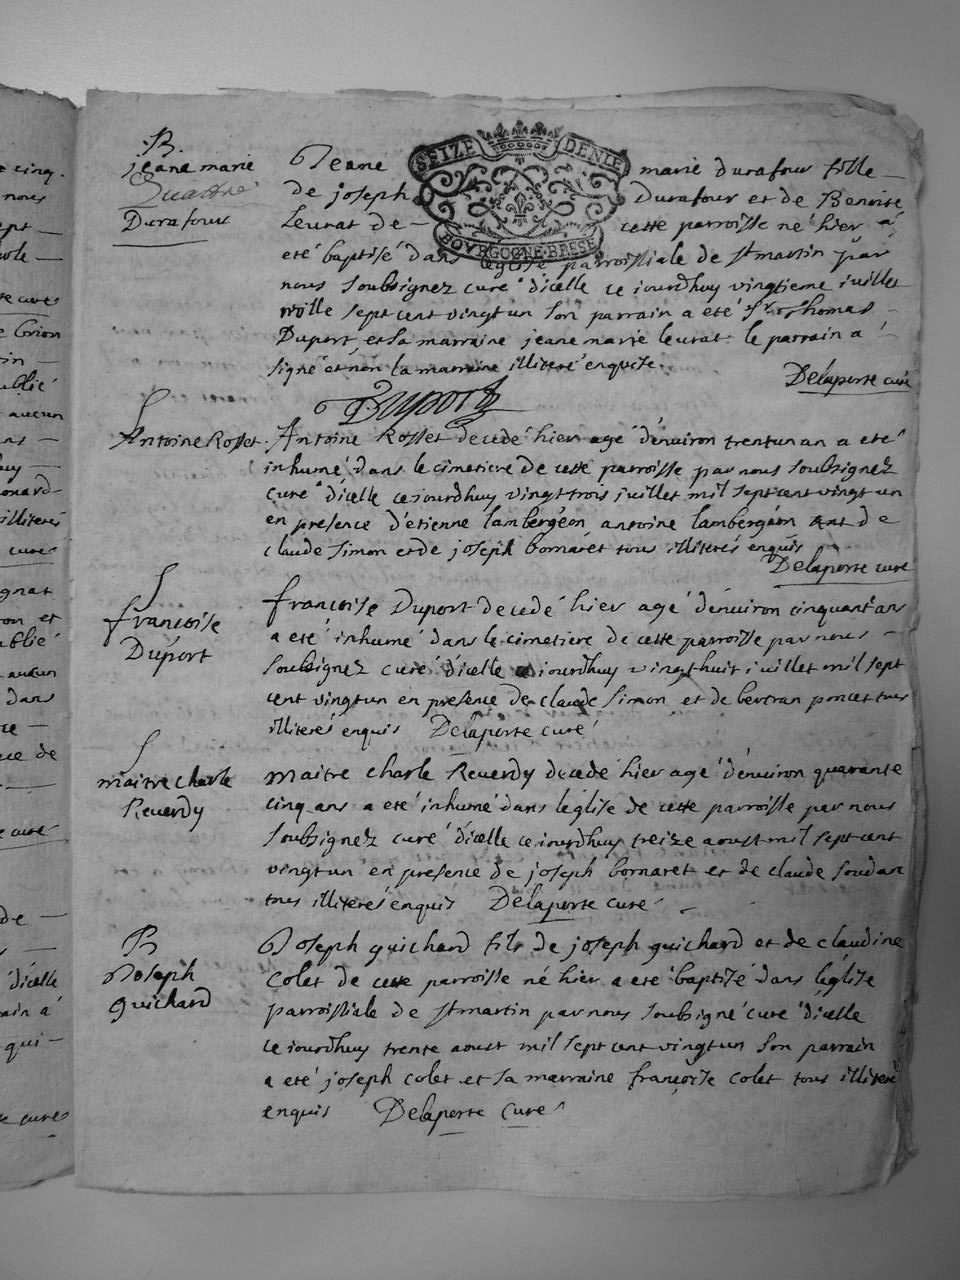 B.
jeane marie
Quattre
Durafour
SEIZE DENIE
BOURGOGNE·BRESSE
Jeane marie durafour fille
de joseph Durafour et de Benoite
Leurat de cette parroisse né hier a
eté baptisé dans leglise parroissiale de st martin par
nous soubsignez curé d'icelle ce iourdhuy vingtieme iuillet
mille sept cent vingt un son parrain a eté sr thomas
Duport et sa marraine jeane marie leurat le parrain a
signé et non la marraine illiteré enquise.
Delaporte curé
Duport
S
Antoine Rosset
Antoine Rosset decedé hier agé d'environ trentun an a eté
inhumé dans le cimetiere de cette parroisse par nous soubsignez
curé d'icelle ce iourdhuy vingt trois iuillet mil sept cent vingt un
en presence d'etienne lambergeon antoine lambergeon de
claude simon et de joseph bornaret tous illiterés enquis
Delaporte curé
S
françoise
Duport
françoise Duport decedé hier agé d'environ cinquant ans
a eté inhumé dans le cimetiere de cette parroisse par nous
soubsignez curé d'icelle ce iourdhuy vingt huit iuillet mil sept
cent vingtun en presence de claude simon et de bertran poncet tous
illiterés enquis Delaporte curé
S
maitre charle
Reverdy
maitre charle Reverdy decedé hier agé d'environ quarante
cinq ans a eté inhumé dans l'église de cette parroisse par nous
soubsignez curé d'icelle ce iourdhuy treize aoust mil sept cent
vingtun en presence de joseph bornaret et de claude soudan
tous illiterés enquis Delaporte curé
B
Joseph
guichard
Joseph guichard fils de joseph guichard et de claudine
Colet de cette parroisse né hier a eté baptisé dans l'église
parroissiale de st martin par nous soubsigné curé d'icelle
ce iourdhuy trente aoust mil sept cent vingtun son parrain
a eté joseph colet et sa marraine françoise colet tous illiteré
enquis Delaporte curé